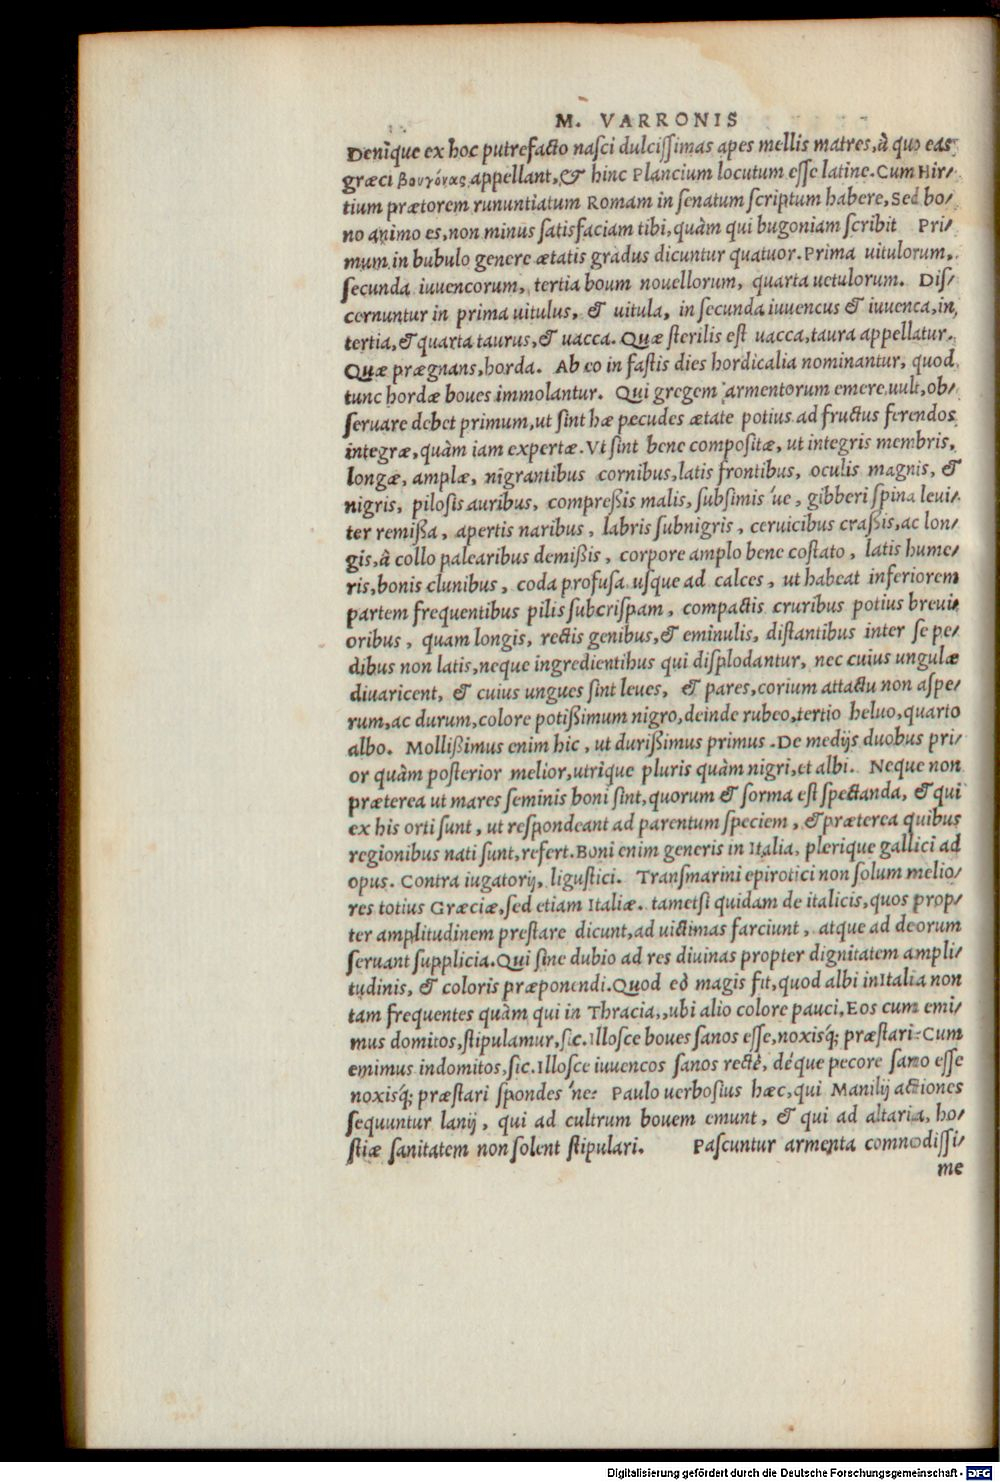 M. VARRONIS
Denique ex hoc putrefacto nasci dulcissimas apes mellis matres, à quo eas
græci βουγόνας appellant, & hinc Plancium locutum esse latine. Cum Hir/
tium prætorem rununtiatum Romam in senatum scriptum habere, Sed bo/
no animo es, non minus satisfaciam tibi, quàm qui bugoniam scribit Pri/
mum in bubulo genere ætatis gradus dicuntur quatuor. Prima uitulorum,
secunda iuuencorum, tertia boum nouellorum, quarta uetulorum. Dis/
cernuntur in prima uitulus, & uitula, in secunda iuuencus & iuuenca, in
tertia, & quarta taurus, & uacca. Quæ sterilis est uacca, taura appellatur.
Quæ prægnans, horda. Ab eo in fastis dies hordicalia nominantur, quod
tunc hordæ boues immolantur. Qui gregem armentorum emere uult, ob/
seruare debet primum, ut sint hæ pecudes ætate potius ad fructus ferendos
integræ, quàm iam expertæ. Vt sint bene compositæ, ut integris membris,
longæ, amplæ, nigrantibus cornibus, latis frontibus, oculis magnis, &
nigris, pilosis auribus, compreßis malis, subsimis 'ue, gibberi spina leui/
ter remißa, apertis naribus, labris subnigris, ceruicibus craßis, ac lon/
gis, à collo palearibus demißis, corpore amplo bene costato, latis hume/
ris, bonis clunibus, coda profusa usque ad calces, ut habeat inferiorem
partem frequentibus pilis subcrispam, compactis cruribus potius breui/
oribus, quam longis, rectis genibus, & eminulis, distantibus inter se pe/
dibus non latis, neque ingredientibus qui displodantur, nec cuius ungulæ
diuaricent, & cuius ungues sint leues, & pares, corium attactu non aspe/
rum, ac durum, colore potißimum nigro, deinde rubeo, tertio heluo, quarto
albo. Mollißimus enim hic, ut durißimus primus. De medijs duobus pri/
or quàm posterior melior, utrique pluris quàm nigri, et albi. Neque non
præterea ut mares seminis boni sint, quorum & forma est spectanda, & qui
ex his orti sunt, ut respondeant ad parentum speciem, & præterea quibus
regionibus nati sunt, refert. Boni enim generis in Italia, plerique gallici ad
opus. Contra iugatorij, ligustici. Transmarini epirotici non solum melio/
res totius Græciæ, sed etiam Italiæ. tametsi quidam de italicis, quos prop/
ter amplitudinem prestare dicunt, ad uictimas farciunt, atque ad deorum
seruant supplicia. Qui sine dubio ad res diuinas propter dignitatem ampli/
tudinis, & coloris præponendi. Quod eò magis fit, quod albi in Italia non
tam frequentes quàm qui in Thracia,, ubi alio colore pauci, Eos cum emi/
mus domitos, stipulamur, sic. Illosce boues sanos esse, noxisq; præstari: Cum
emimus indomitos, sic. Illosce iuuencos sanos rectè, déque pecore sano esse
noxisq; præstari spondes 'ne: Paulo uerbosius hæc, qui Manilij actiones
sequuntur lanij, qui ad cultrum bouem emunt, & qui ad altaria, ho/
stiæ sanitatem non solent stipulari. Pascuntur armenta commodissi/
me
Digitalisierung gefördert durch die Deutsche Forschungsgemeinschaft - DFG